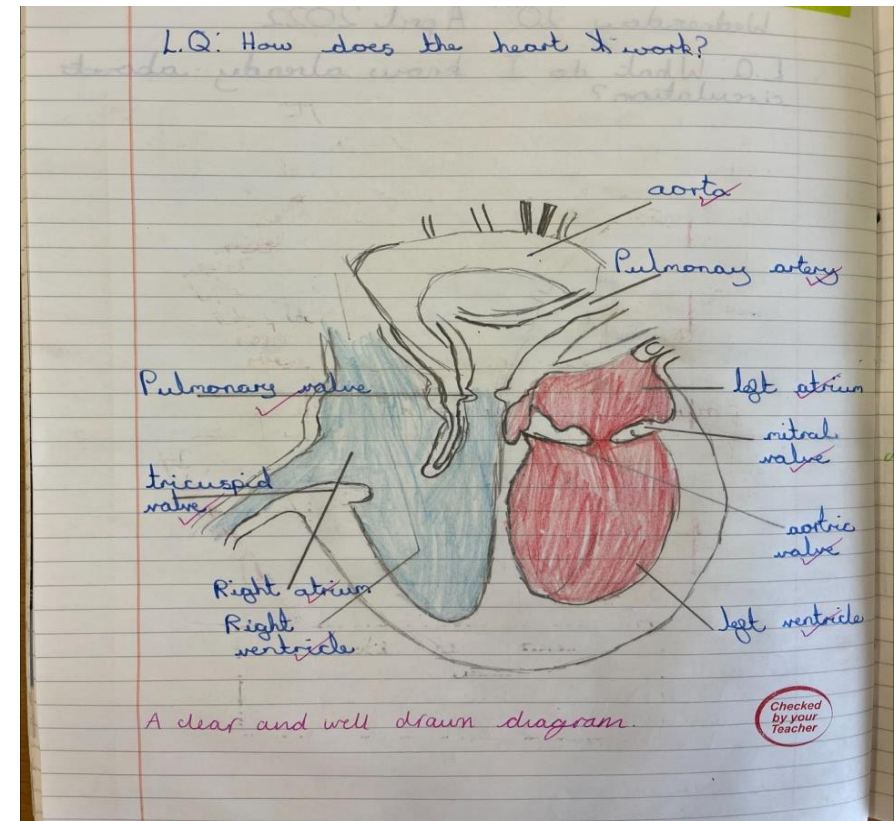 L.Q: How does the heart work?
aorta
Pulmonay artery
Pulmonary valve
left atrium
mitral
valve
tricuspid
valve
aortic
valve
Right atrium
Right
ventricle
left ventricle
A clear and well drawn diagram.
Checked
by your
Teacher